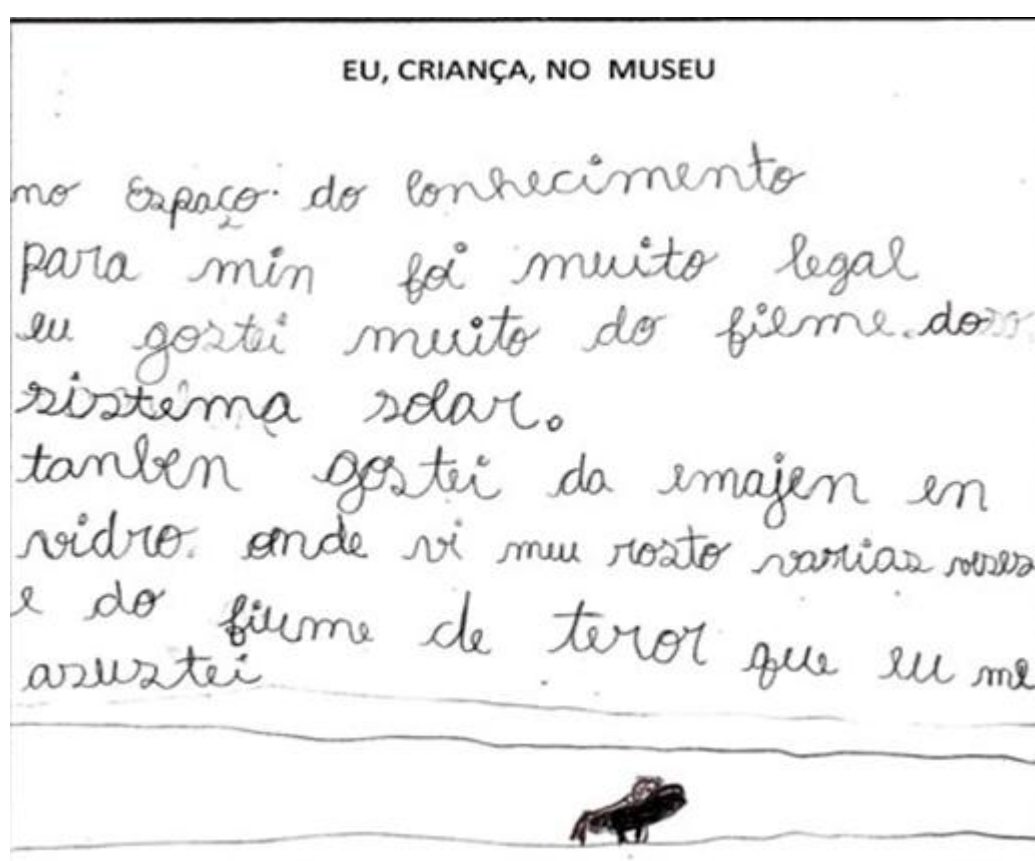 EU, CRIANÇA, NO MUSEU
no Espaço do conhecimento
para min foi muito legal
eu gostei muito do filme do
sistema solar.
tanben gostei da emajen en
vidro. onde vi meu rosto varias veses
e do fiume de teror que eu me
asustei